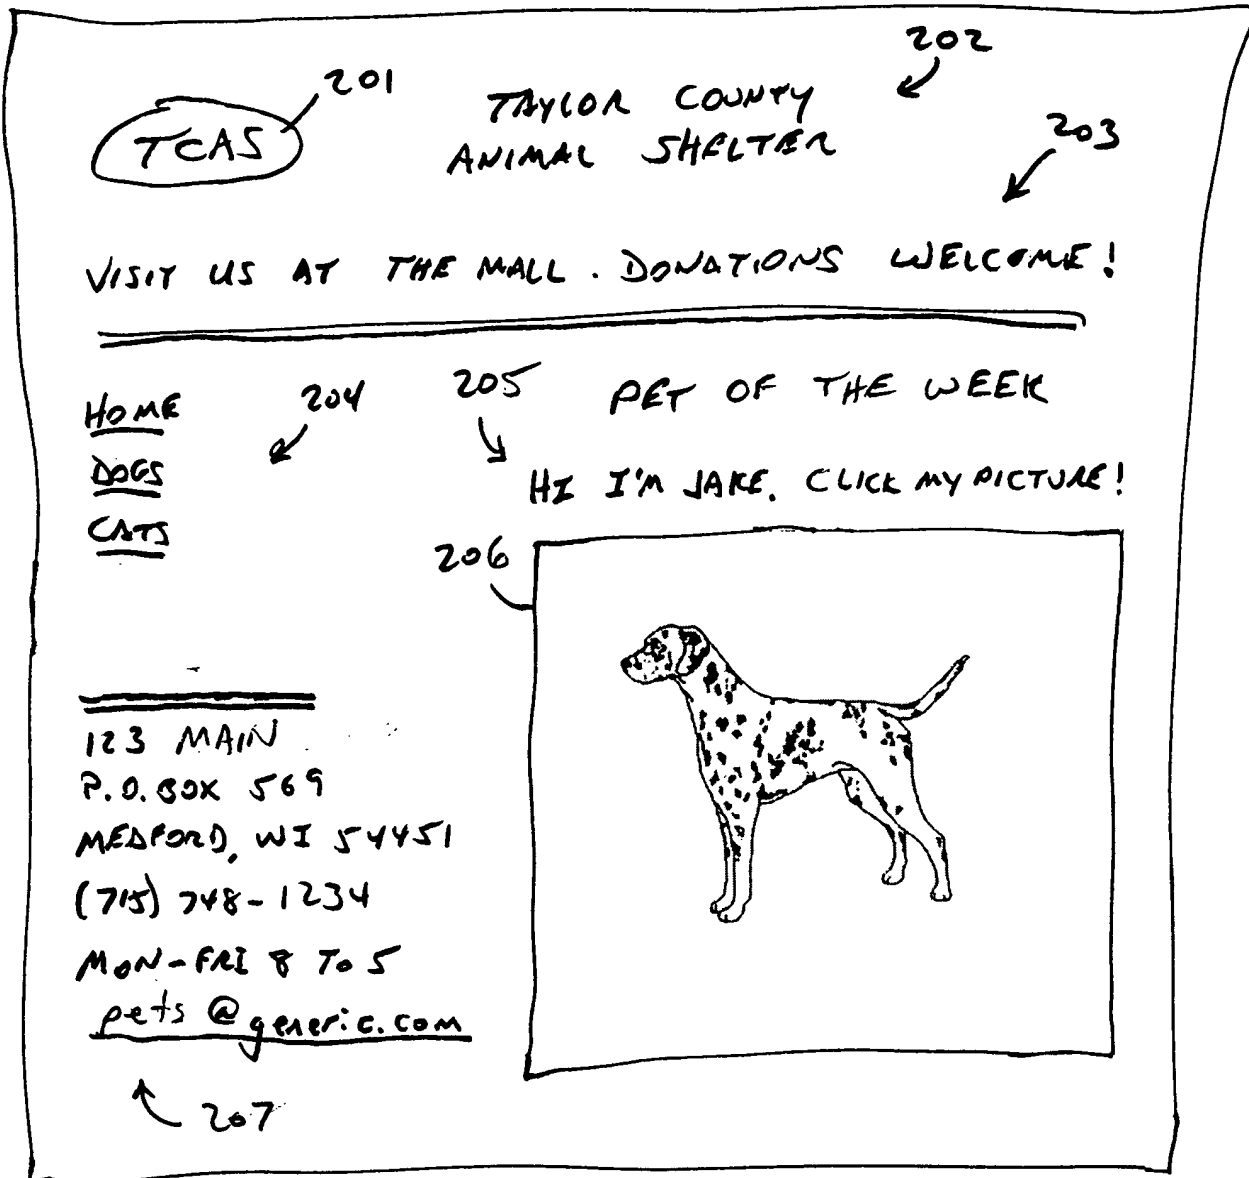 202
201
TCAS
TAYLOR COUNTY
ANIMAL SHELTER
203
VISIT US AT THE MALL. DONATIONS WELCOME!
HOME
DOGS
CATS
204
205
PET OF THE WEEK
HI I'M JAKE. CLICK MY PICTURE!
206
123 MAIN
P.O. BOX 569
MEDFORD, WI 54451
(715) 748-1234
MON-FRI 8 TO 5
pets@generic.com
207